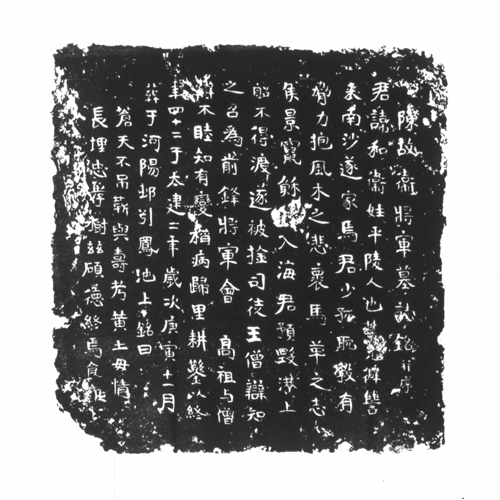 陳故衞將軍墓誌銘并序
君諱和衞姓平陵人也避讎
南沙遂家焉君少孤毅有
膂力抱風木之悲裹馬革之志
侯景竄餘入海君預戮淇上
船不得渡遂被擒司徒王僧辯知
之召為前鋒將軍會 高祖与僧
辯不睦知有變稱病歸里耕鑿以終
年四十二于太建二年歲次庚寅十二月
葬于河陽邨引鳳池上銘曰
蒼天不弔靳與壽考黃土毋情
長埋忠孝樹茲碩德終焉食報